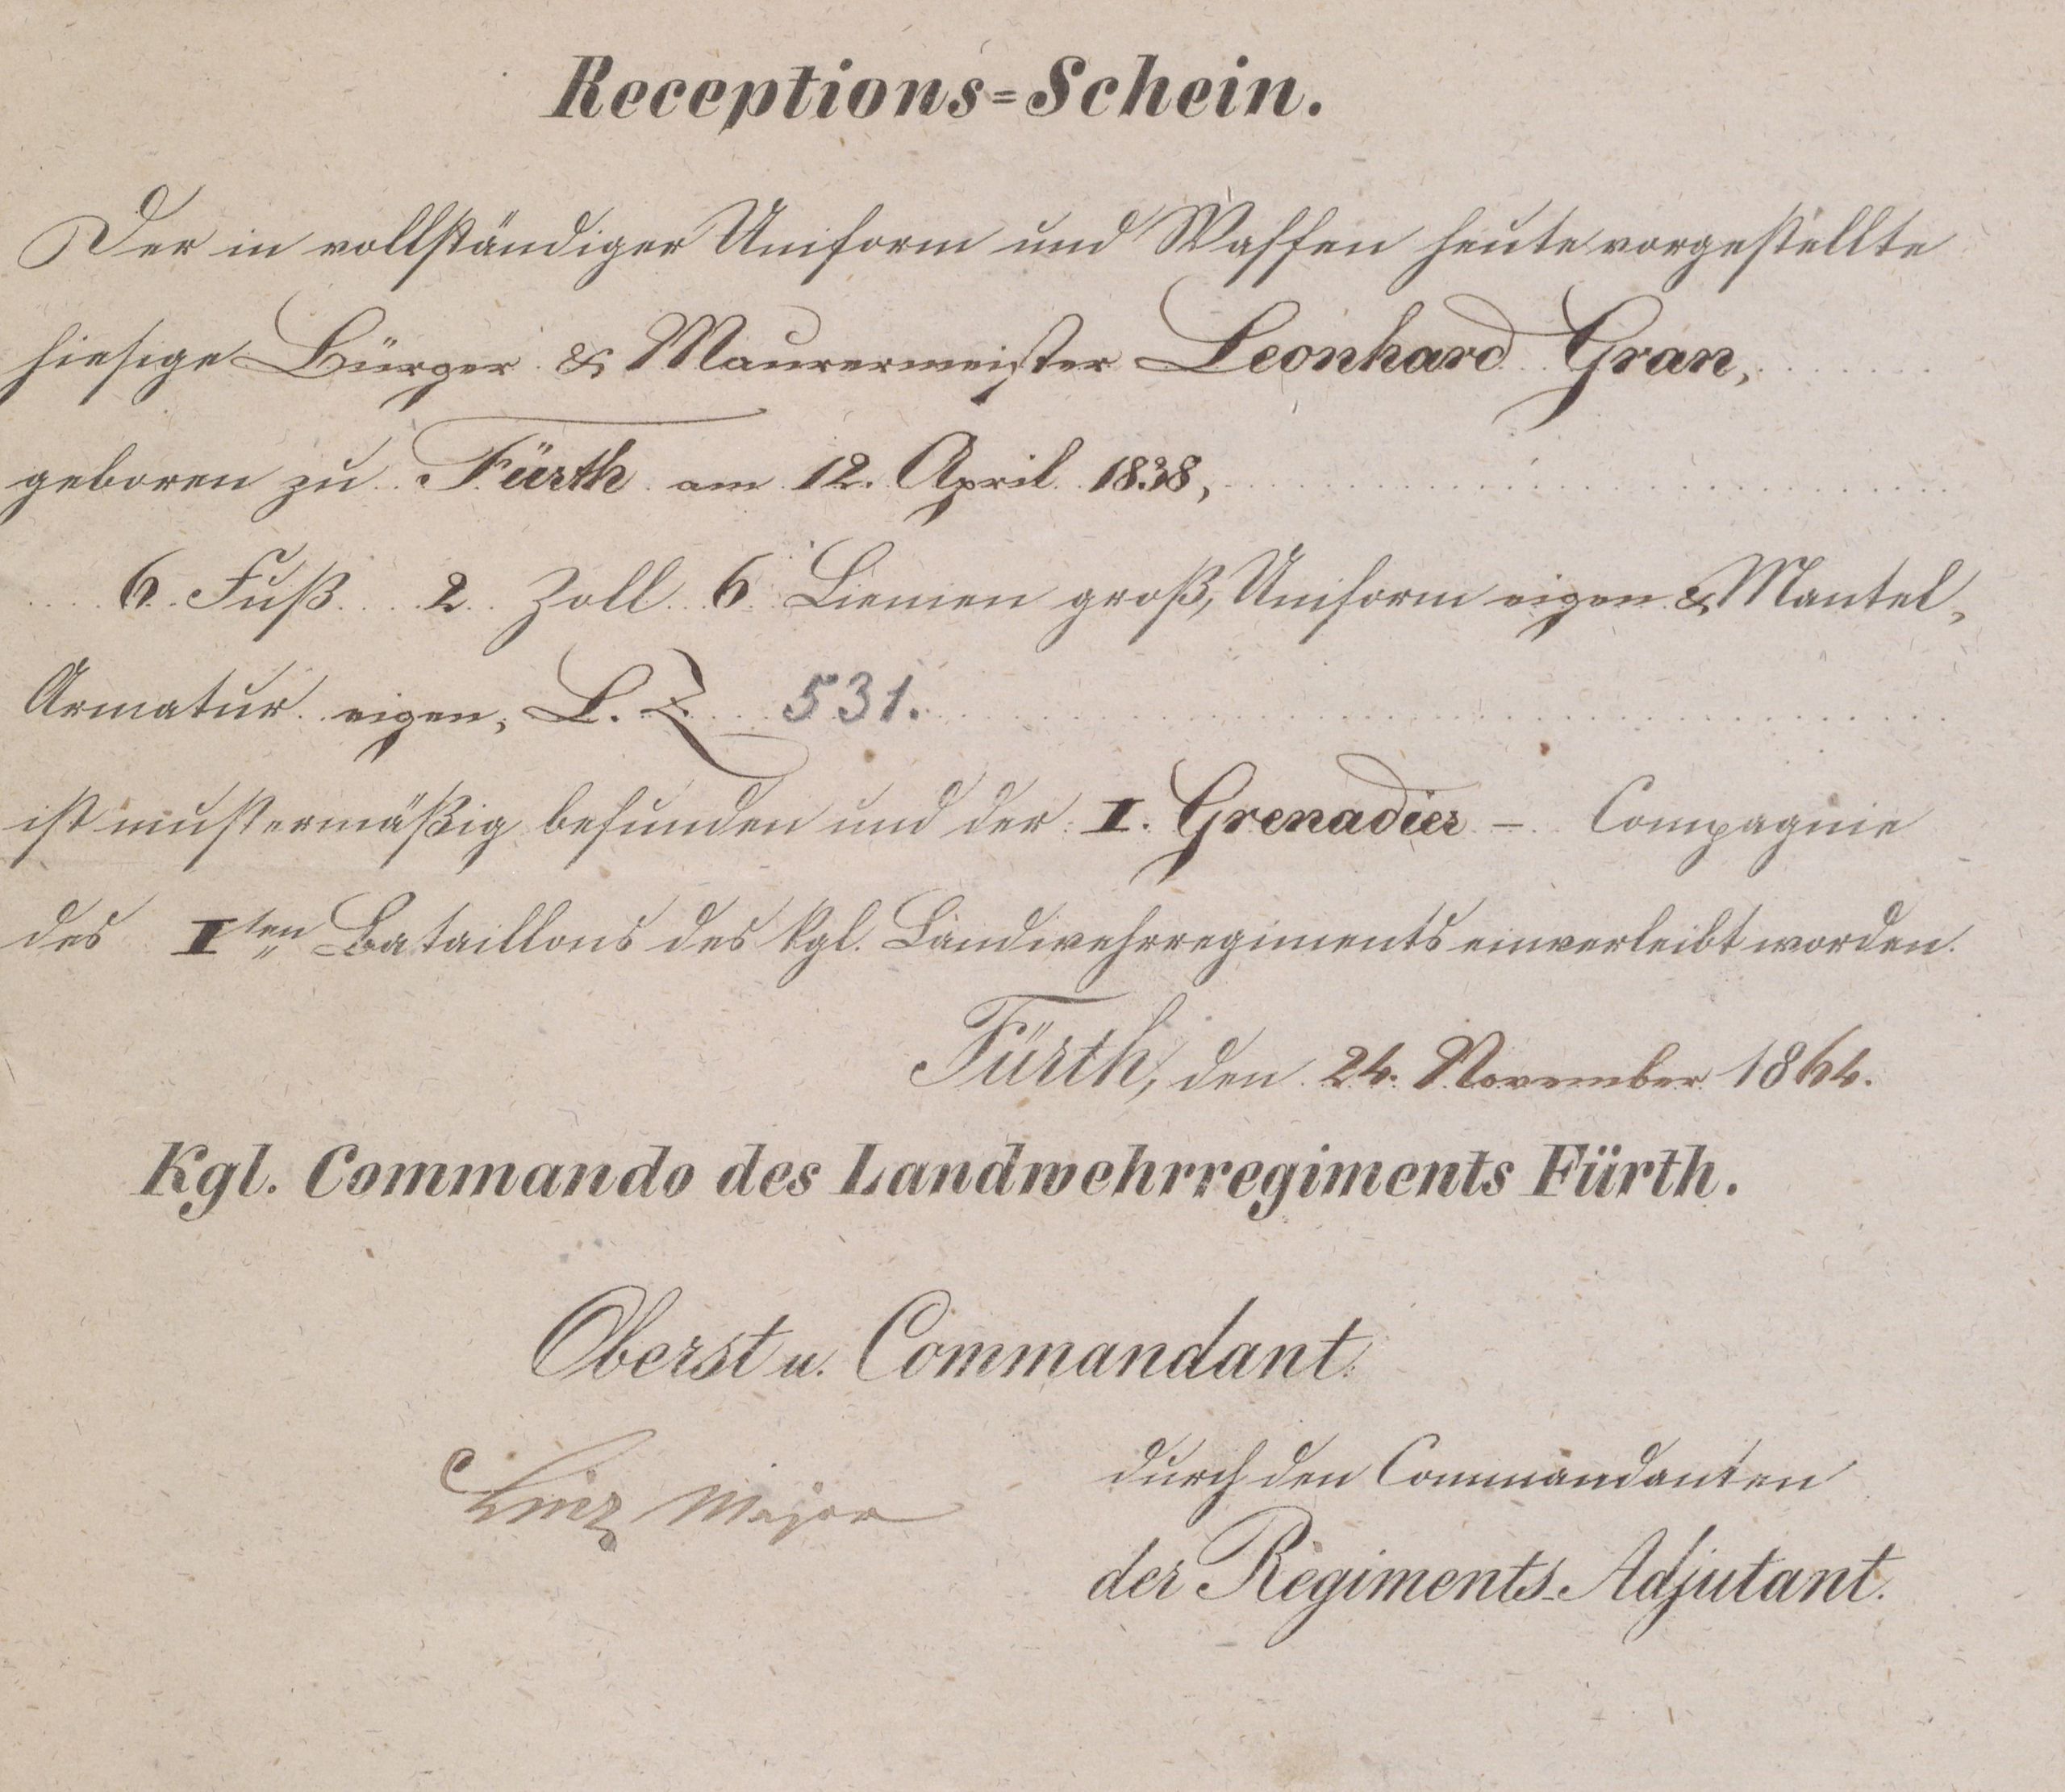 Receptions=Schein.
Der in vollständiger Uniform und Waffen heute vorgestellte
hiesige Bürger & Maurermeister Leonhard Gran,
geboren zu Fürth am 12. April 1838,
6 Fuß 2 Zoll 6 Linien groß, Uniform eigen & Mantel,
Armatur eigen, L. Z. 531.
ist mustermäßig befunden und der I. Grenadier - Compagnie
des Iten Bataillons des kgl. Landwehrregiments einverleibt worden.
Fürth, den 24. November 1864.
Kgl. Commando des Landwehrregiments Fürth.
Oberst u. Commandant.
Linz Major
durch den Commandanten
der Regiments-Adjutant.